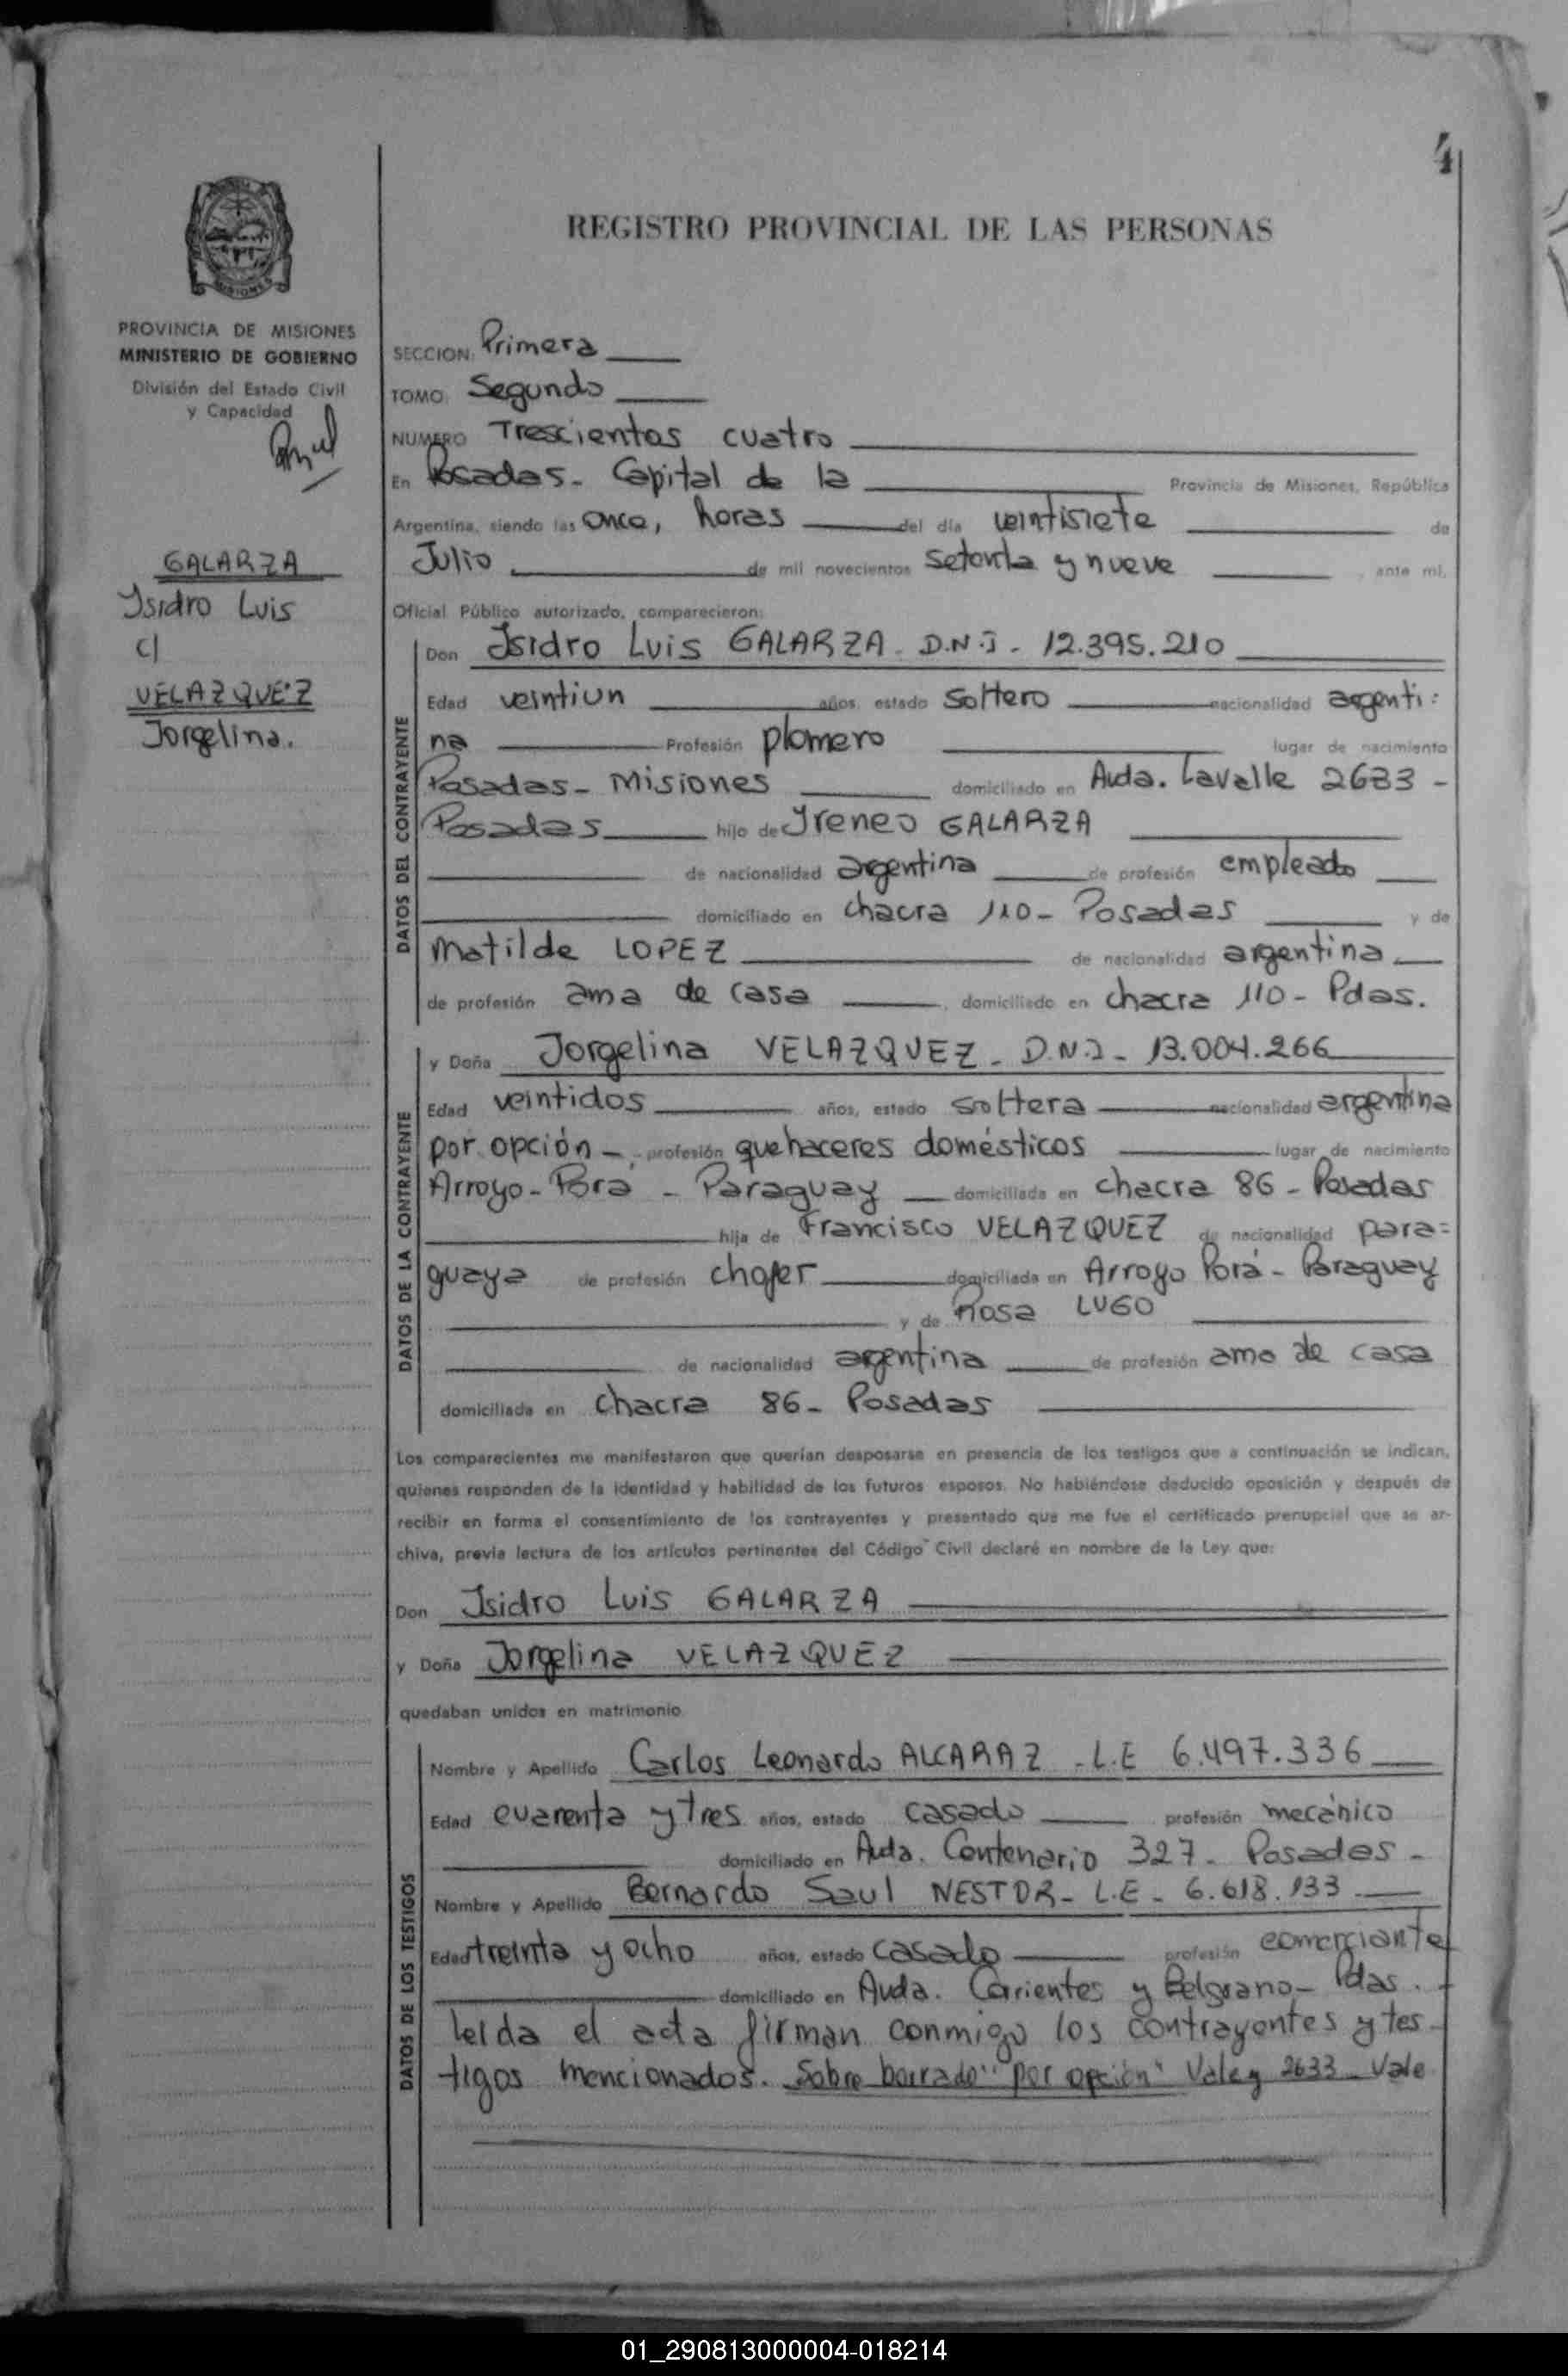 4
REGISTRO PROVINCIAL DE LAS PERSONAS
MISIONES
PROVINCIA DE MISIONES
MINISTERIO DE GOBIERNO
División del Estado Civil
y Capacidad
GALARZA
Isidro Luis
c/
VELAZQUEZ
Jorgelina.
SECCION: Primera
TOMO: Segundo
NUMERO Trescientos cuatro
En Posadas - Capital de la Provincia de Misiones, República
Argentina, siendo las once, horas del día veintisiete de
Julio de mil novecientos setenta y nueve, ante mí,
Oficial Público autorizado, comparecieron:
DATOS DEL CONTRAYENTE
Don Isidro Luis GALARZA - D.N.I - 12.395.210
Edad veintiun años, estado soltero nacionalidad argenti=
na Profesión plomero lugar de nacimiento
Posadas - Misiones domiciliado en Avda. Lavalle 2633 -
Posadas hijo de Ireneo GALARZA
de nacionalidad argentina de profesión empleado
domiciliado en chacra 110 - Posadas y de
Matilde LOPEZ de nacionalidad argentina
de profesión ama de casa, domiciliado en chacra 110 - Pdas.
DATOS DE LA CONTRAYENTE
y Doña Jorgelina VELAZQUEZ - D.N.I - 13.004.266
Edad veintidos años, estado soltera nacionalidad argentina
por opción -, profesión quehaceres domésticos lugar de nacimiento
Arroyo - Porá - Paraguay domiciliada en chacra 86 - Posadas
hija de Francisco VELAZQUEZ de nacionalidad para=
guaya de profesión chofer domiciliada en Arroyo Porá - Paraguay
y de Rosa LUGO
de nacionalidad argentina de profesión ama de casa
domiciliada en chacra 86 - Posadas
Los comparecientes me manifestaron que querían desposarse en presencia de los testigos que a continuación se indican,
quienes responden de la identidad y habilidad de los futuros esposos. No habiéndose deducido oposición y después de
recibir en forma el consentimiento de los contrayentes y presentado que me fue el certificado prenupcial que se ar-
chiva, previa lectura de los artículos pertinentes del Código Civil declaré en nombre de la Ley que:
Don Isidro Luis GALARZA
y Doña Jorgelina VELAZQUEZ
quedaban unidos en matrimonio
DATOS DE LOS TESTIGOS
Nombre y Apellido Carlos Leonardo ALCARAZ - L.E 6.497.336
Edad cuarenta y tres años, estado casado profesión mecánico
domiciliado en Avda. Centenario 327 - Posadas -
Nombre y Apellido Bernardo Saul NESTOR - L.E - 6.618.133
Edad treinta y ocho años, estado casado profesión comerciante
domiciliado en Avda. Corientes y Belgrano - Pdas. -
leida el acta firman conmigo los contrayentes y tes-
tigos mencionados. Sobre borrado "por opción" Vale y 2633 - Vale
01_290813000004-018214